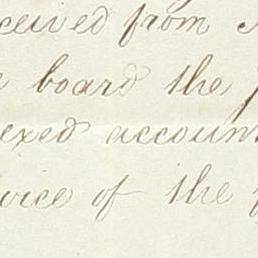 ceived from
board the
exed account
voice of the